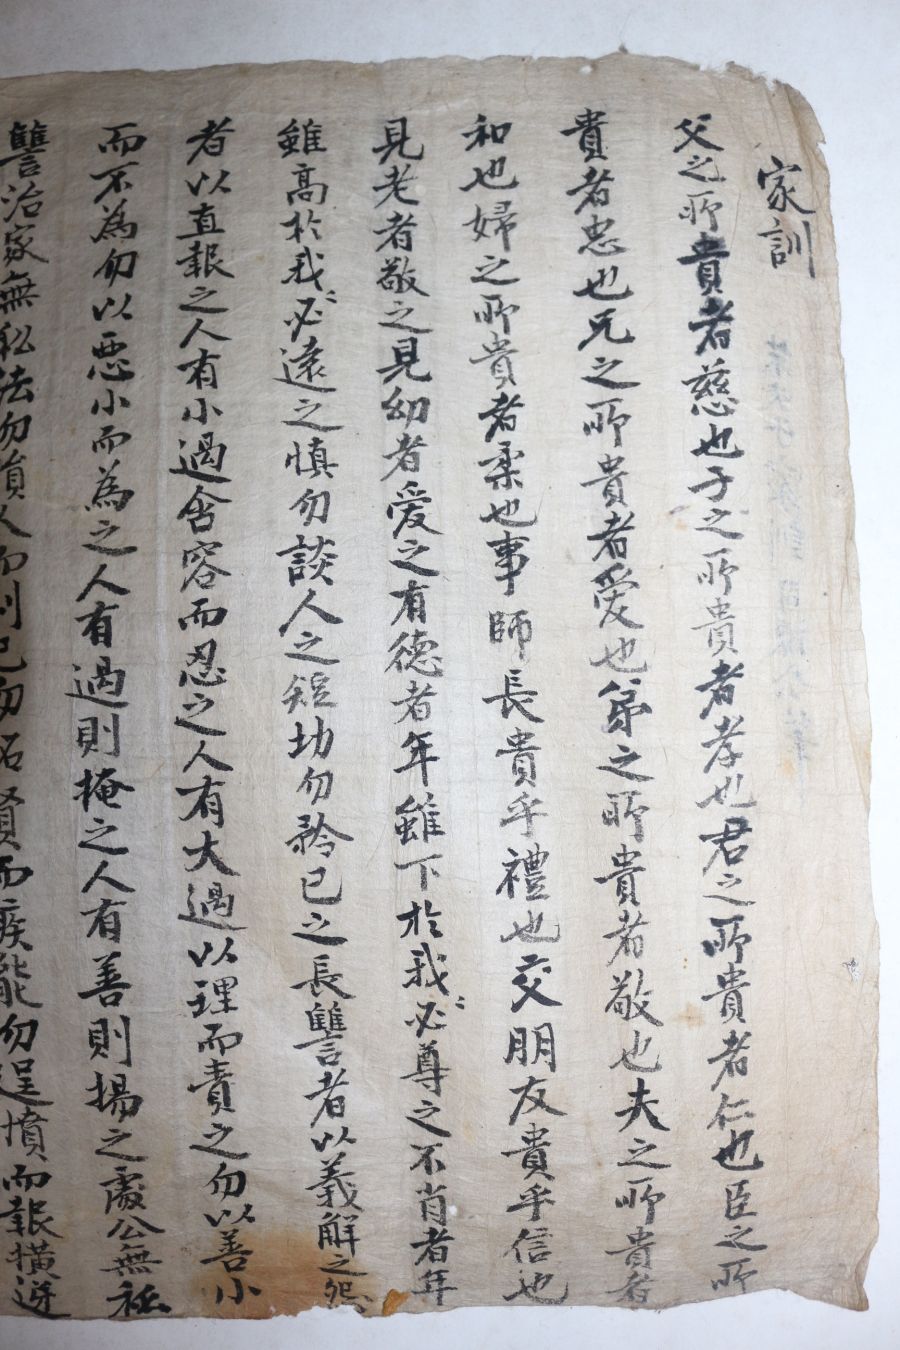 家訓
父之所貴者慈也子之所貴者孝也君之所貴者仁也臣之所
貴者忠也兄之所貴者愛也弟之所貴者敬也夫之所貴者
和也婦之所貴者柔也事師長貴乎禮也交朋友貴乎信也
見老者敬之見幼者愛之有德者年雖下於我必尊之不肖者年
雖高於我必遠之慎勿談人之短切勿矜己之長讐者以義解之怨
者以直報之人有小過含容而忍之人有大過以理而責之勿以善小
而不為勿以惡小而為之人有過則掩之人有善則揚之處公無私
讐治家無私法勿損人而利己勿妬賢而疾能勿逞憤而報橫逆